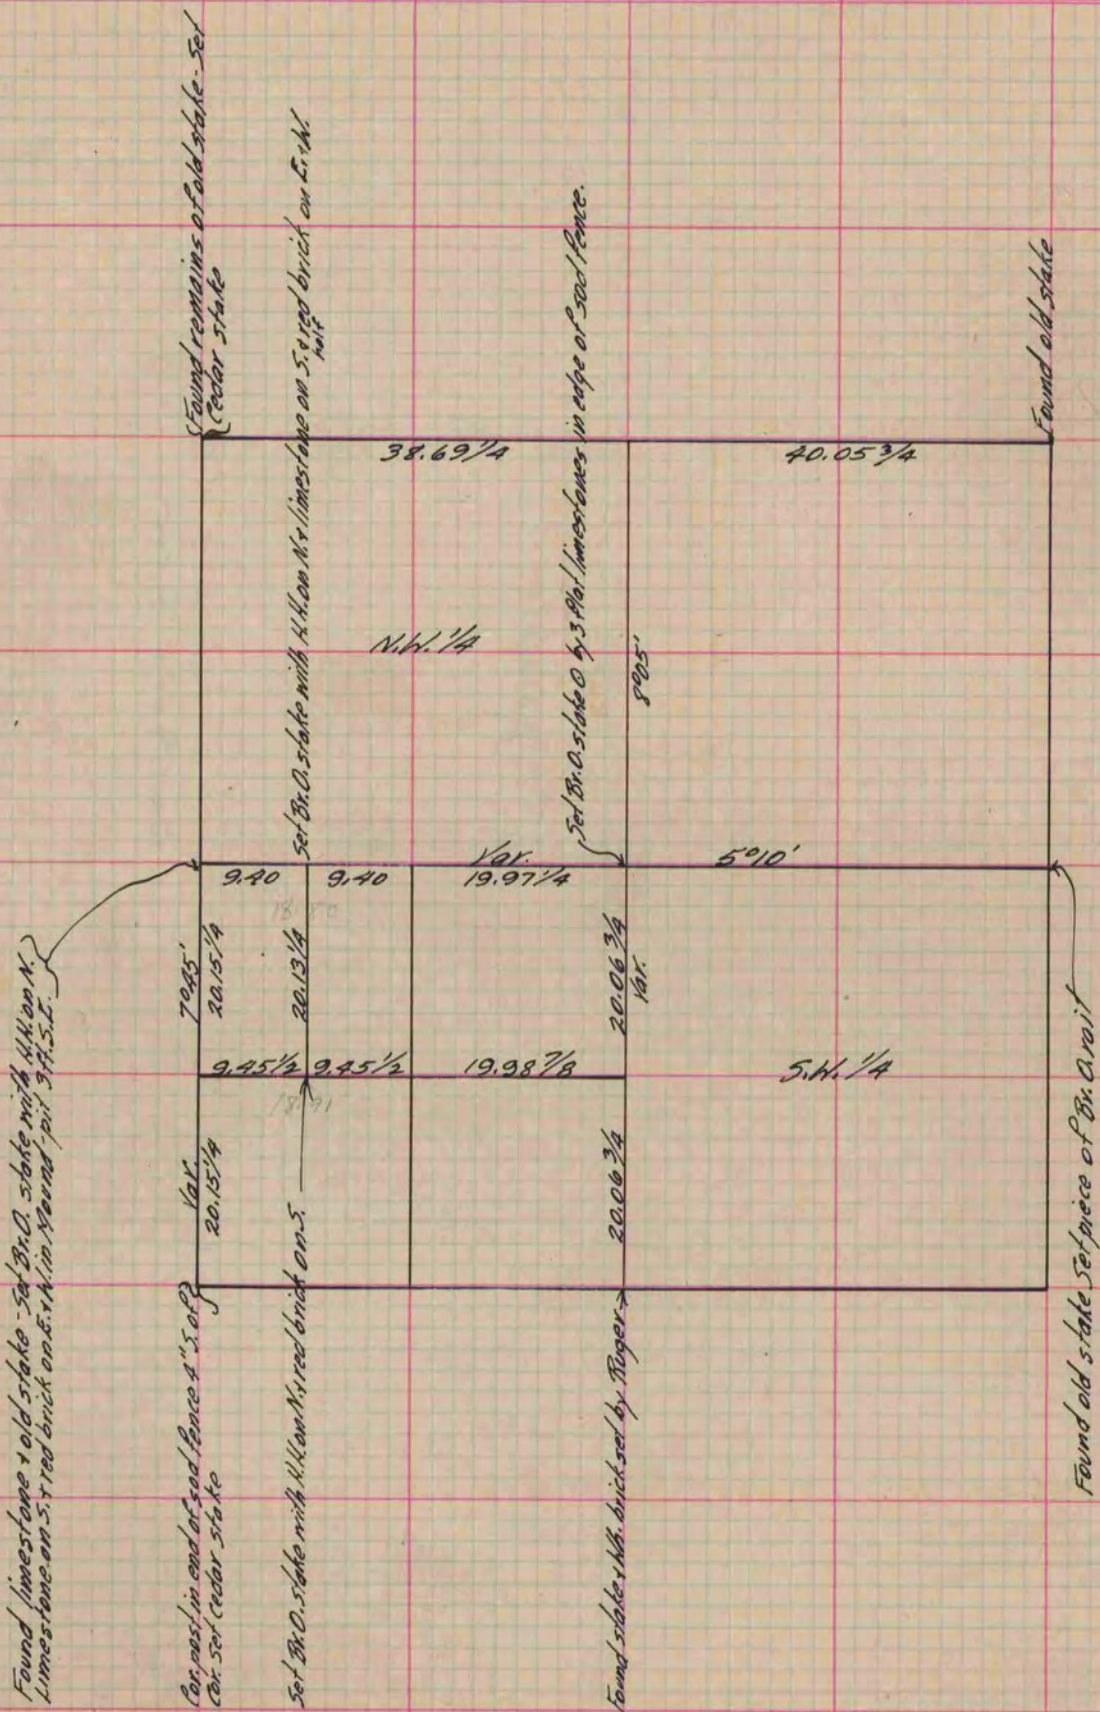 Found limestone & old stake - Set Br.O. stake with H.H. on N.
Limestone on S. & red brick on E. & W. in Mound - pit 3ft. S.E.
Found remains of old stake - Set
Cedar stake
Set Br.O. stake with H.H. on N. & limestone on S. & red brick on E. & W.
half
Set Br.O. stake O by 3 flat limestones in edge of sod fence.
Found old stake
38.69 1/4
40.05 3/4
N.W. 1/4
8°05'
Var.
5°10'
9.40
9.40
19.97 1/4
18.80
7°45'
20.15 1/4
20.13 1/4
20.06 3/4
Var.
9.45 1/2
9.45 1/2
19.98 7/8
S.W. 1/4
18.91
Var.
20.15 1/4
20.06 3/4
Cor. post in end of sod fence 4" S. of
Cor. set cedar stake
Set Br.O. stake with H.H. on N. & red brick on S.
Found stake & Wh. brick set by Ruger
Found old stake Set piece of Br. O. rail